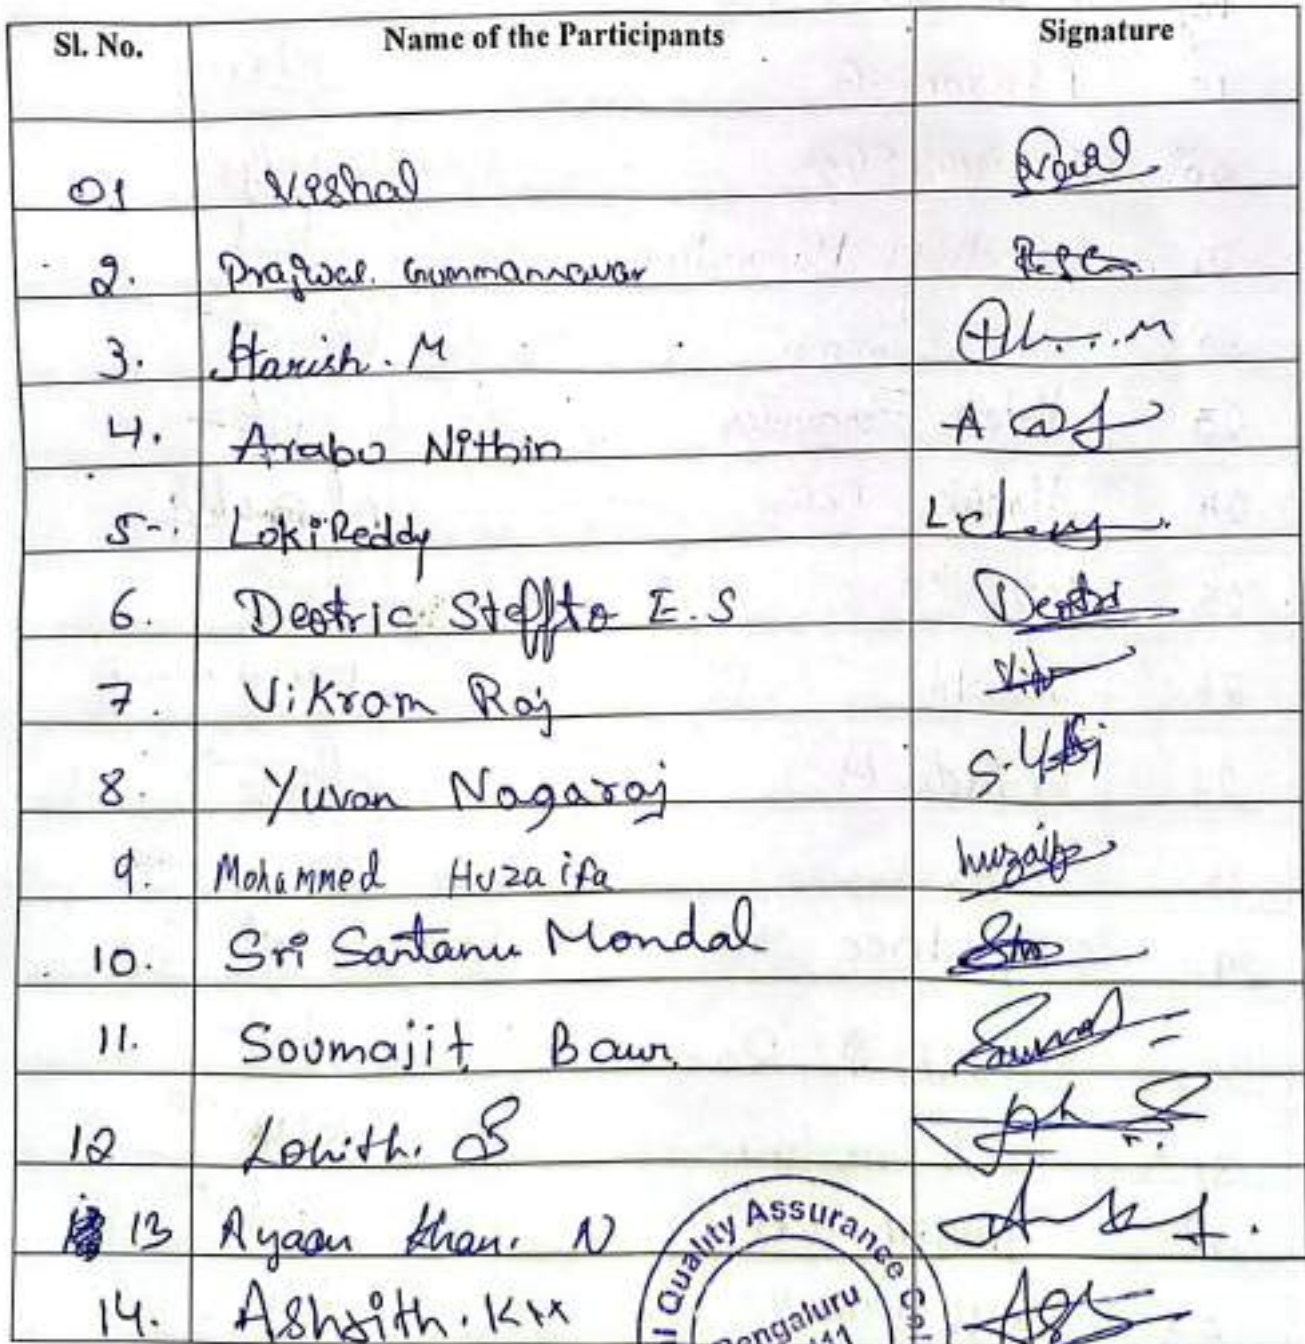 Sl. No. Name of the Participants Signature
01 Vishal
2. Prajwal. Gummannavar
3. Harish. M
4. Arabu Nithin
5-. Loki Reddy
6. Deotric Steffto E.S Deotri
7. Vikram Raj
8. Yuvan Nagaraj
9. Mohammed Huzaifa huzaifa
10. Sri Santanu Mondal
11. Soumajit Baur
12 Lohith. S
13 Ayaan Khan. N
14. Ashrith. KM
Quality Assurance Cel
Bengaluru